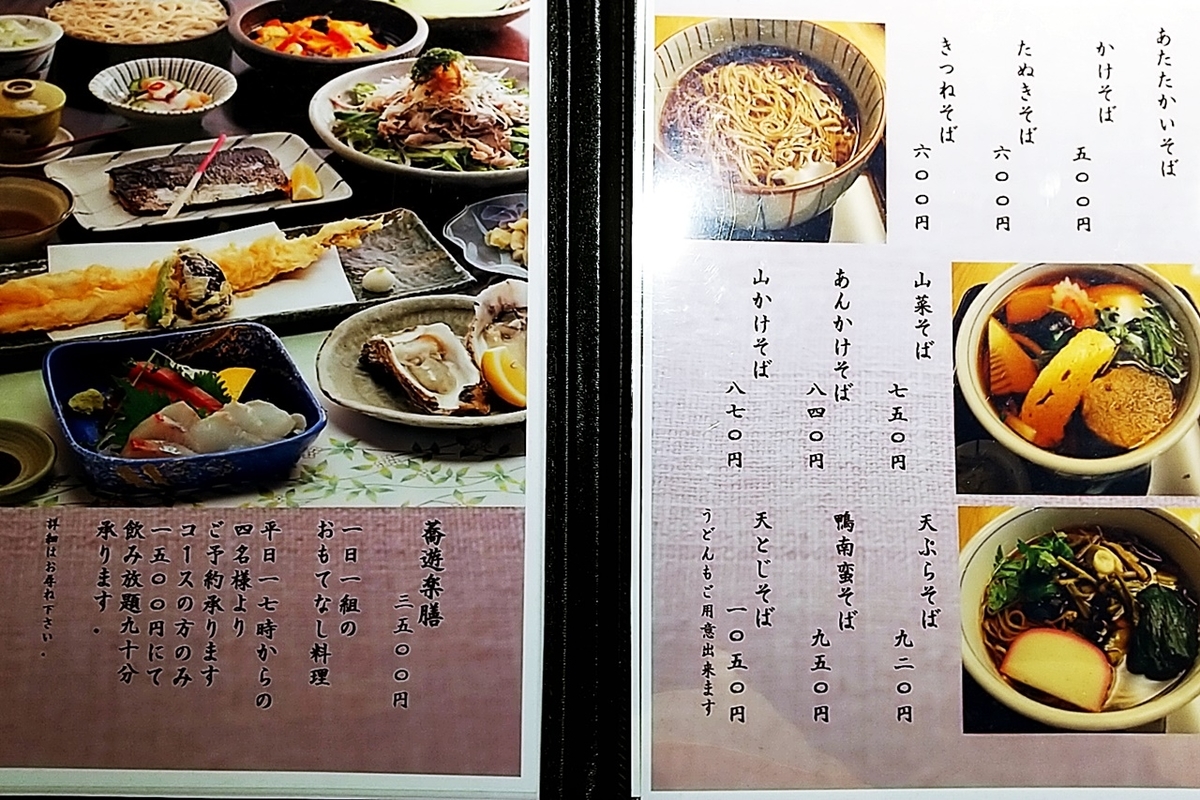 蕎遊楽膳
三五〇〇円
一日一組の
おもてなし料理
平日一七時からの
四名様より
ご予約承ります
コースの方のみ
一五〇〇円にて
飲み放題九十分
承ります。
詳細はお尋ね下さい。
あたたかいそば
かけそば
五〇〇円
たぬきそば
六〇〇円
きつねそば
六〇〇円
山菜そば
七五〇円
あんかけそば
八四〇円
山かけそば
八七〇円
天ぷらそば
九二〇円
鴨南蛮そば
九五〇円
天とじそば
一〇五〇円
うどんもご用意出来ます